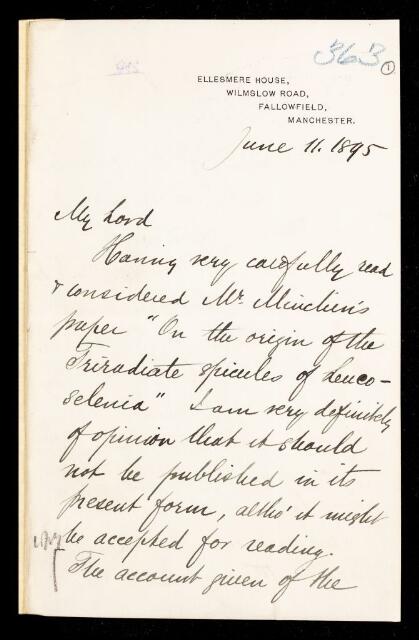 363
1
ELLESMERE HOUSE,
WILMSLOW ROAD,
FALLOWFIELD,
MANCHESTER.
June 11. 1895
My Lord
Having very carefully read
& considered Mr. Minchin's
paper "On the origin of the
Triradiate spicules of Leuco-
selenia" I am very definitely
of opinion that it should
not be published in its
present form, altho' it might
be accepted for reading.
The account given of the